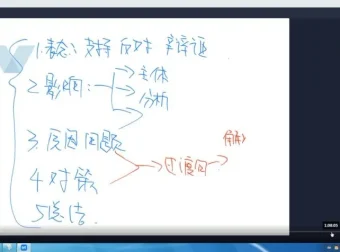 1.表态：支持 反对 辩证
2.影响：
主体
分析
3.原因问题
4 对策
过渡句
解
5总结.
1:08:01